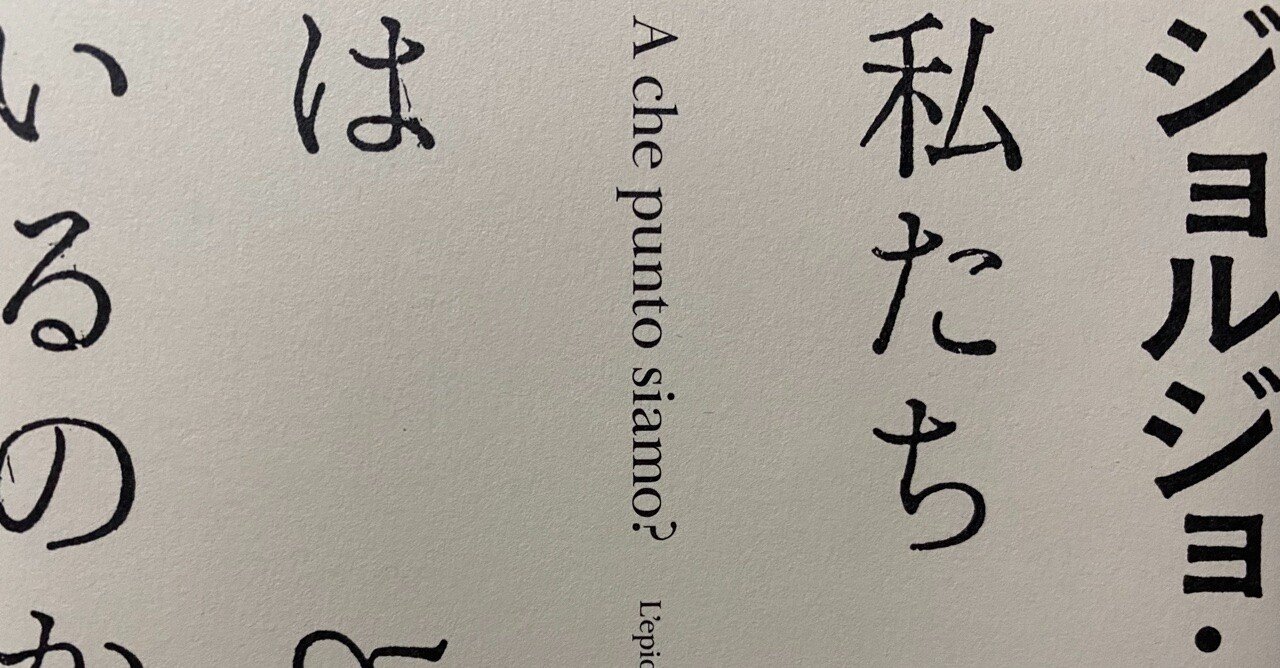 ジョルジョ・
私たち
A che punto siamo?
は
いるのか